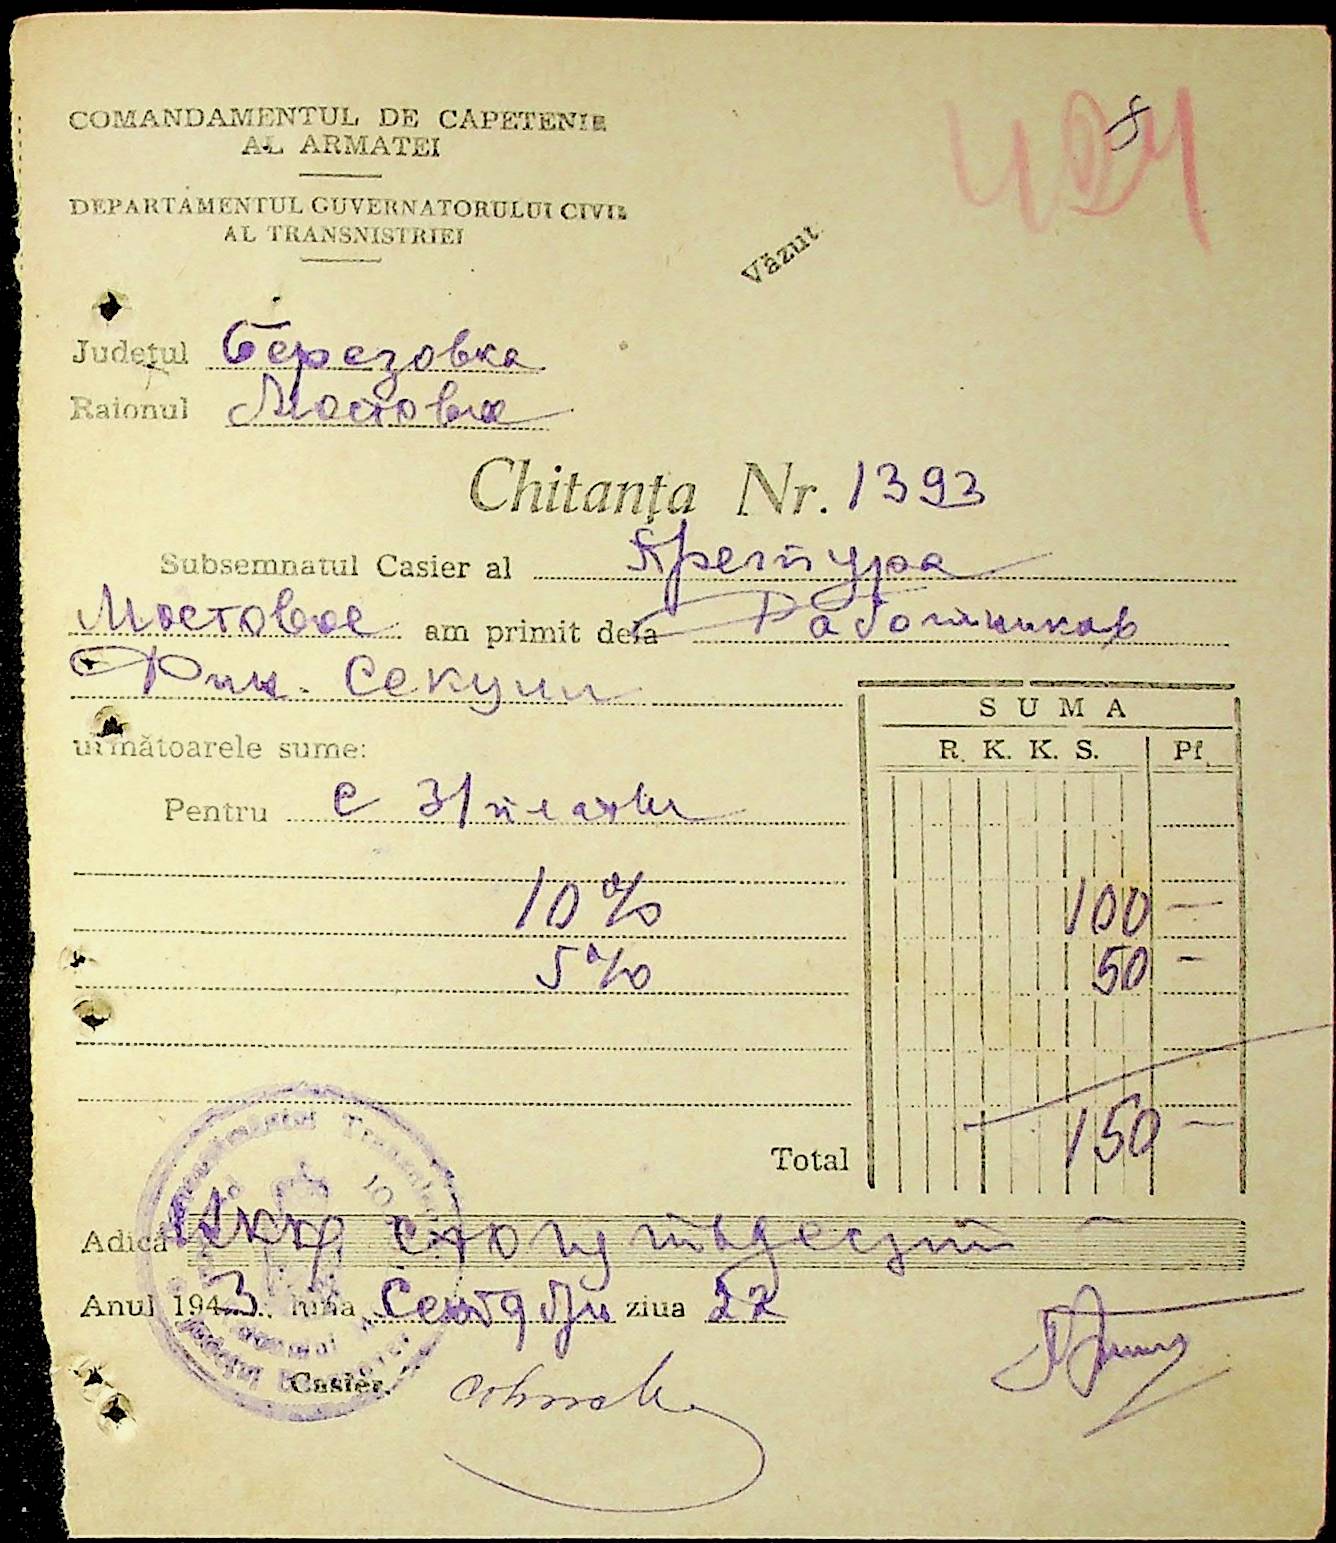 COMANDAMENTUL DE CAPETENIE
AL ARMATEI
DEPARTAMENTUL GUVERNATORULUI CIVIL
AL TRANSNISTRIEI
Văzut
Județul Березовка
Raionul Мостовое
Chitanța Nr. 1393
Subsemnatul Casier al Претура
Мостовое am primit dela Работников
Фин. Секции
următoarele sume:
SUMA
R. K. K. S. Pf.
Pentru с З/платы
10% 100 —
5% 50 —
Total 150 —
Adică сто пятьдесят
Anul 1943 luna Сентября ziua 22
Casier,